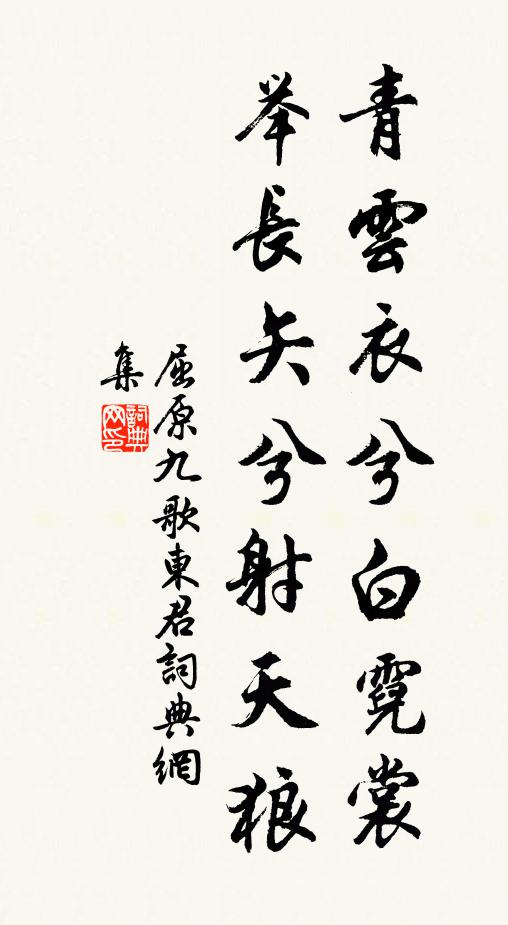 青雲衣兮白霓裳
举長矢兮射天狼
屈原九歌東君詞典網
集
詞典网印